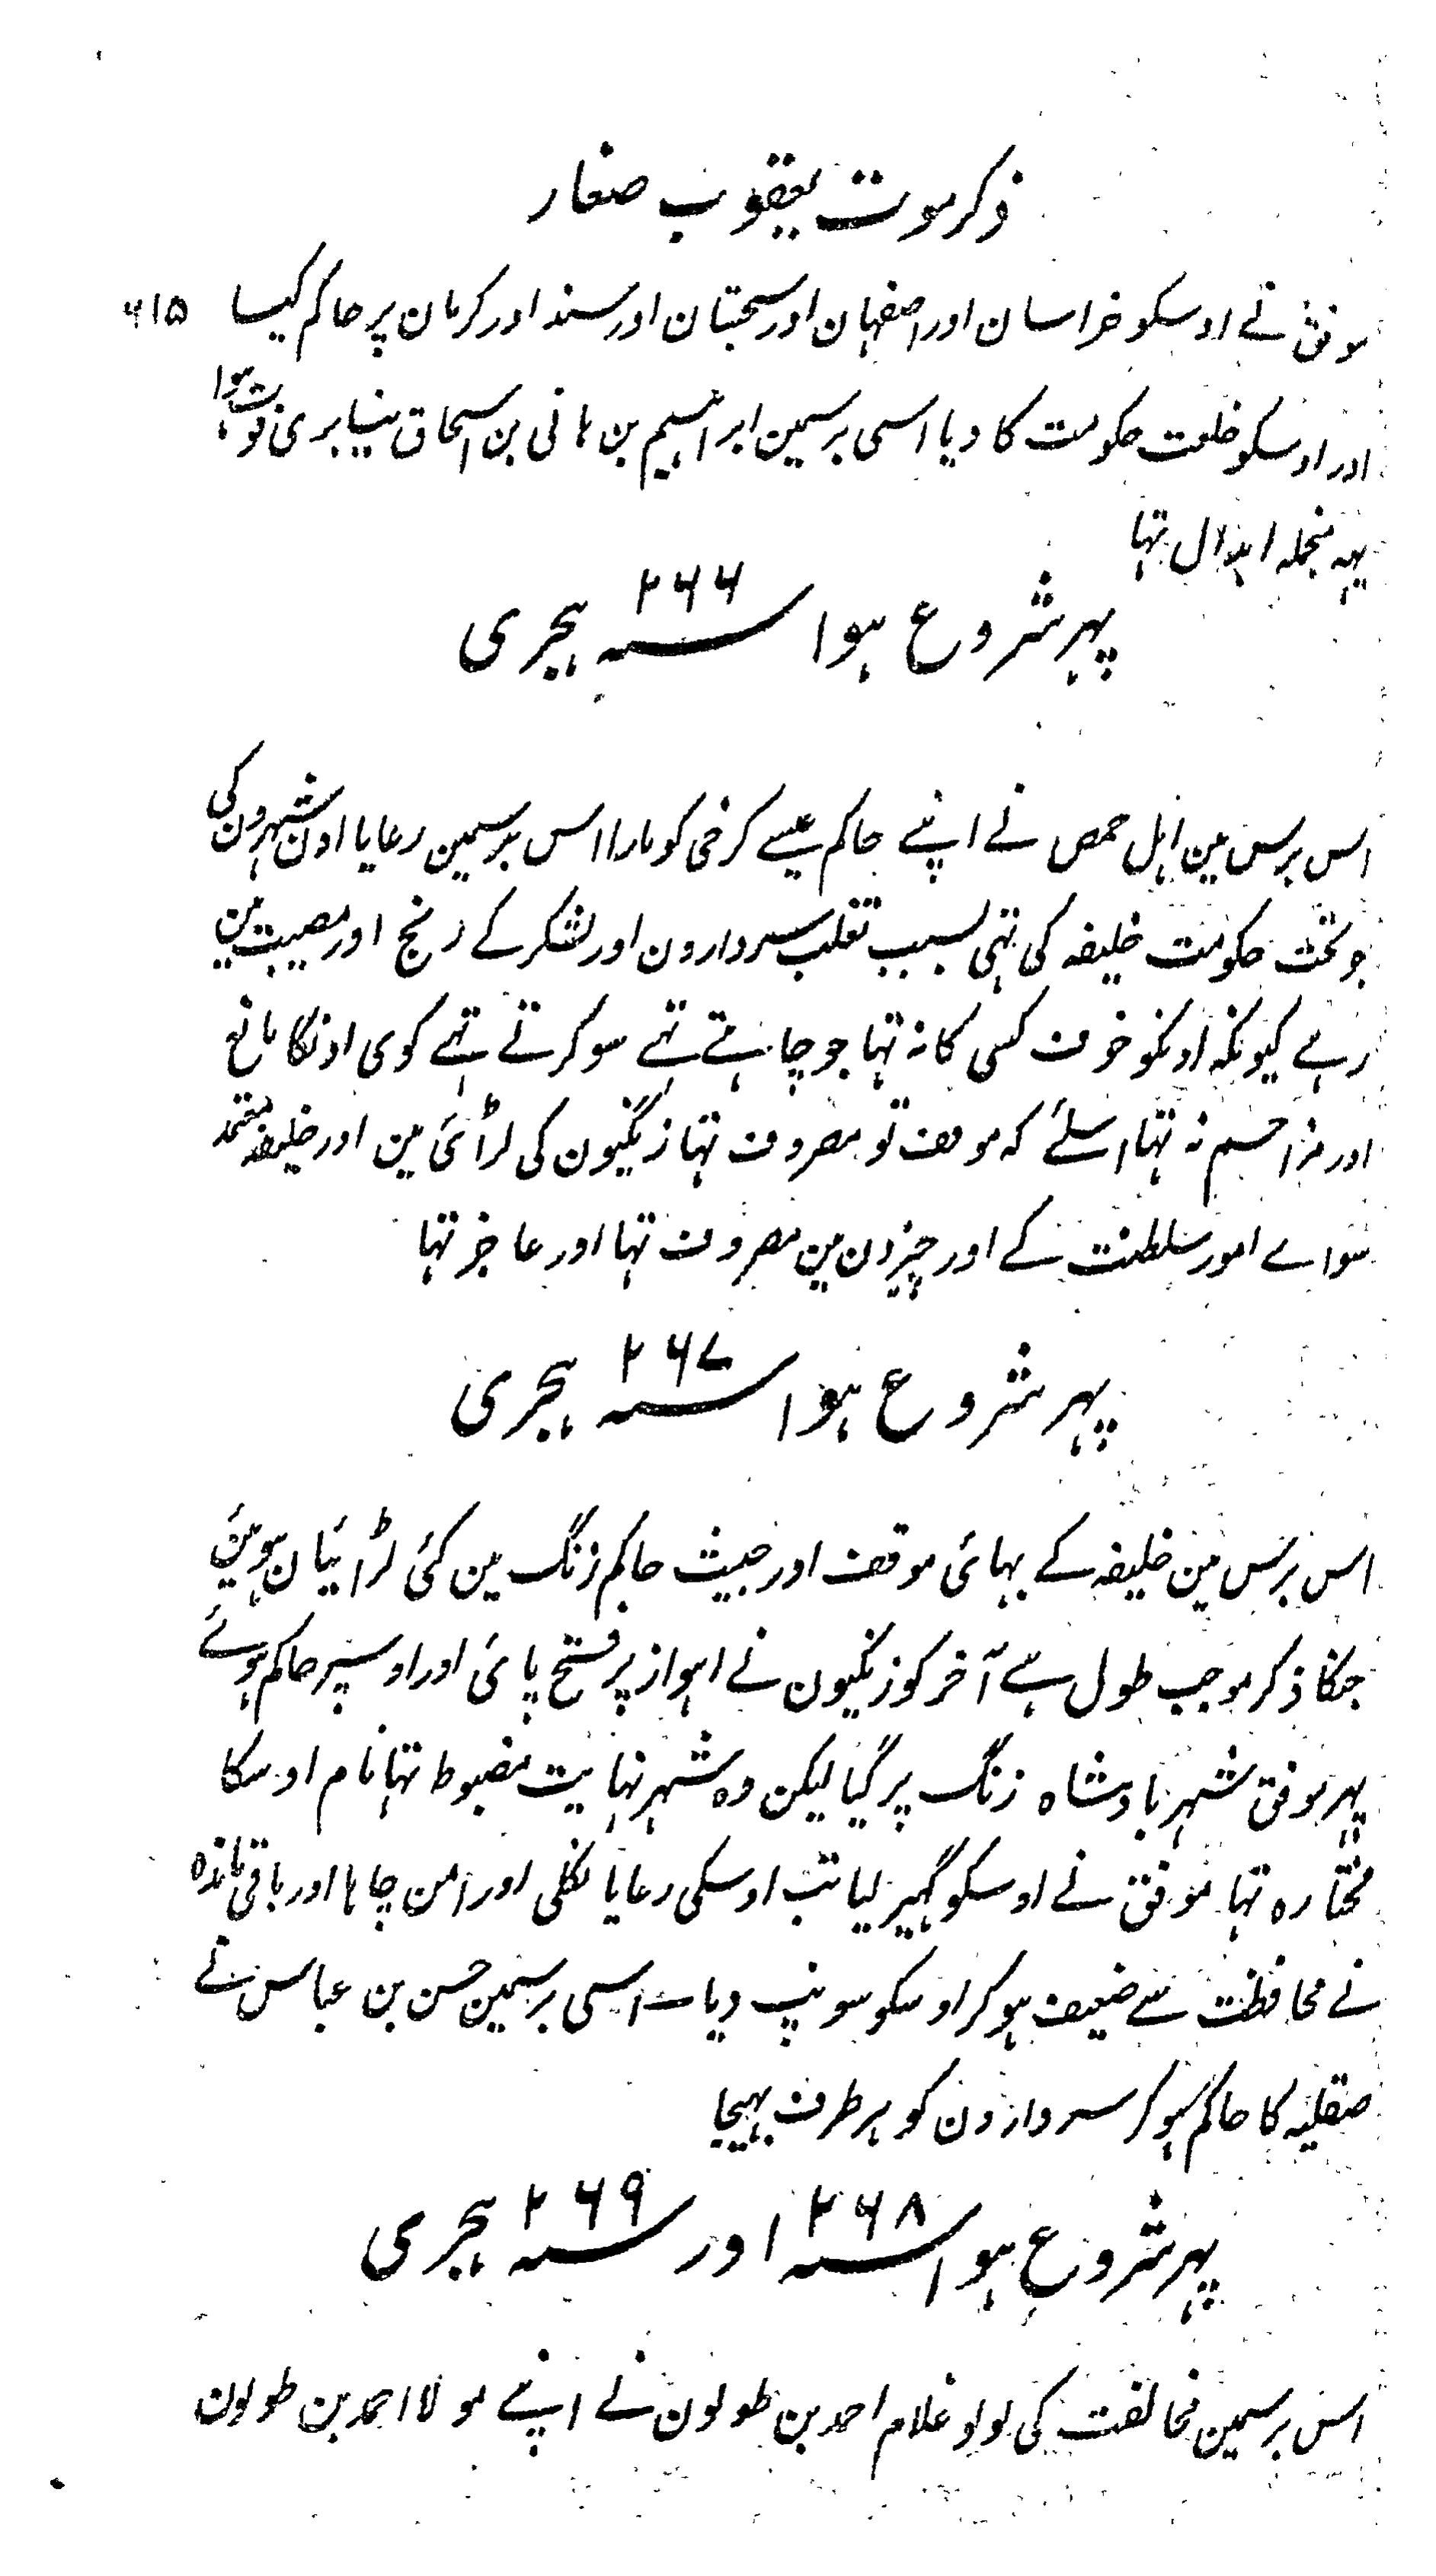 ذکر موت یعقوب صفار
موفق نے اوسکو خراسان اور اصفہان اور سجستان اور سند اور کرمان پر حاکم کیا ۶۱۵
اور اوسکو خلعت حکومت کا دیا اسی برسمین ابراہیم بن ہانی بن اسحاق نیسابری فوت ہوا
یہہ منجملہ ابدال تہا
پہر شروع ہوا ۲۶۶ سنہ ہجری
اس برس مین اہل حمص نے اپنے حاکم عیسے کرخی کو مارا اس برسمین رعایا اون شہرون کی
جو تحت حکومت خلیفہ کی تہی بسبب تغلب سردارون اور لشکر کے رنج اور مصیبت مین
رہے کیونکہ اونکو خوف کسی کا نہ تہا جو چاہتے تہے سو کرتے تہے کوی اونکا مانع
اور مزاحم نہ تہا اسلئے کہ موفق تو مصروف تہا زنگیون کی لڑائی مین اور خلیفہ معتمد
سواے امور سلطنت کے اور چیزون مین مصروف تہا اور عاجز تہا
پہر شروع ہوا ۲۶۷ سنہ ہجری
اس برس مین خلیفہ کے بہائی موفق اور خبیث حاکم زنگ مین کئی لڑائیان ہوئین
جنکا ذکر موجب طول ہے آخر کو زنگیون نے اہواز پر فتح پائی اور اوسپر حاکم ہوئے
پہر موفق شہر بادشاہ زنگ پر گیا لیکن وہ شہر نہایت مضبوط تہا نام اوسکا
مختارہ تہا موفق نے اوسکو گہیر لیا تب اوسکی رعایا نکلی اور امن چاہا اور باقی ماندہ
نے محافظت سے ضعیف ہو کر اوسکو سونپ دیا ۔ اسی برسمین حسن بن عباس نے
صقلیہ کا حاکم ہو کر سردارون کو ہر طرف بہیجا
پہر شروع ہوا ۲۶۸ سنہ اور ۲۶۹ سنہ ہجری
اس برسمین مخالفت کی لولو غلام احمد بن طولون نے اپنے مولا احمد بن طولون